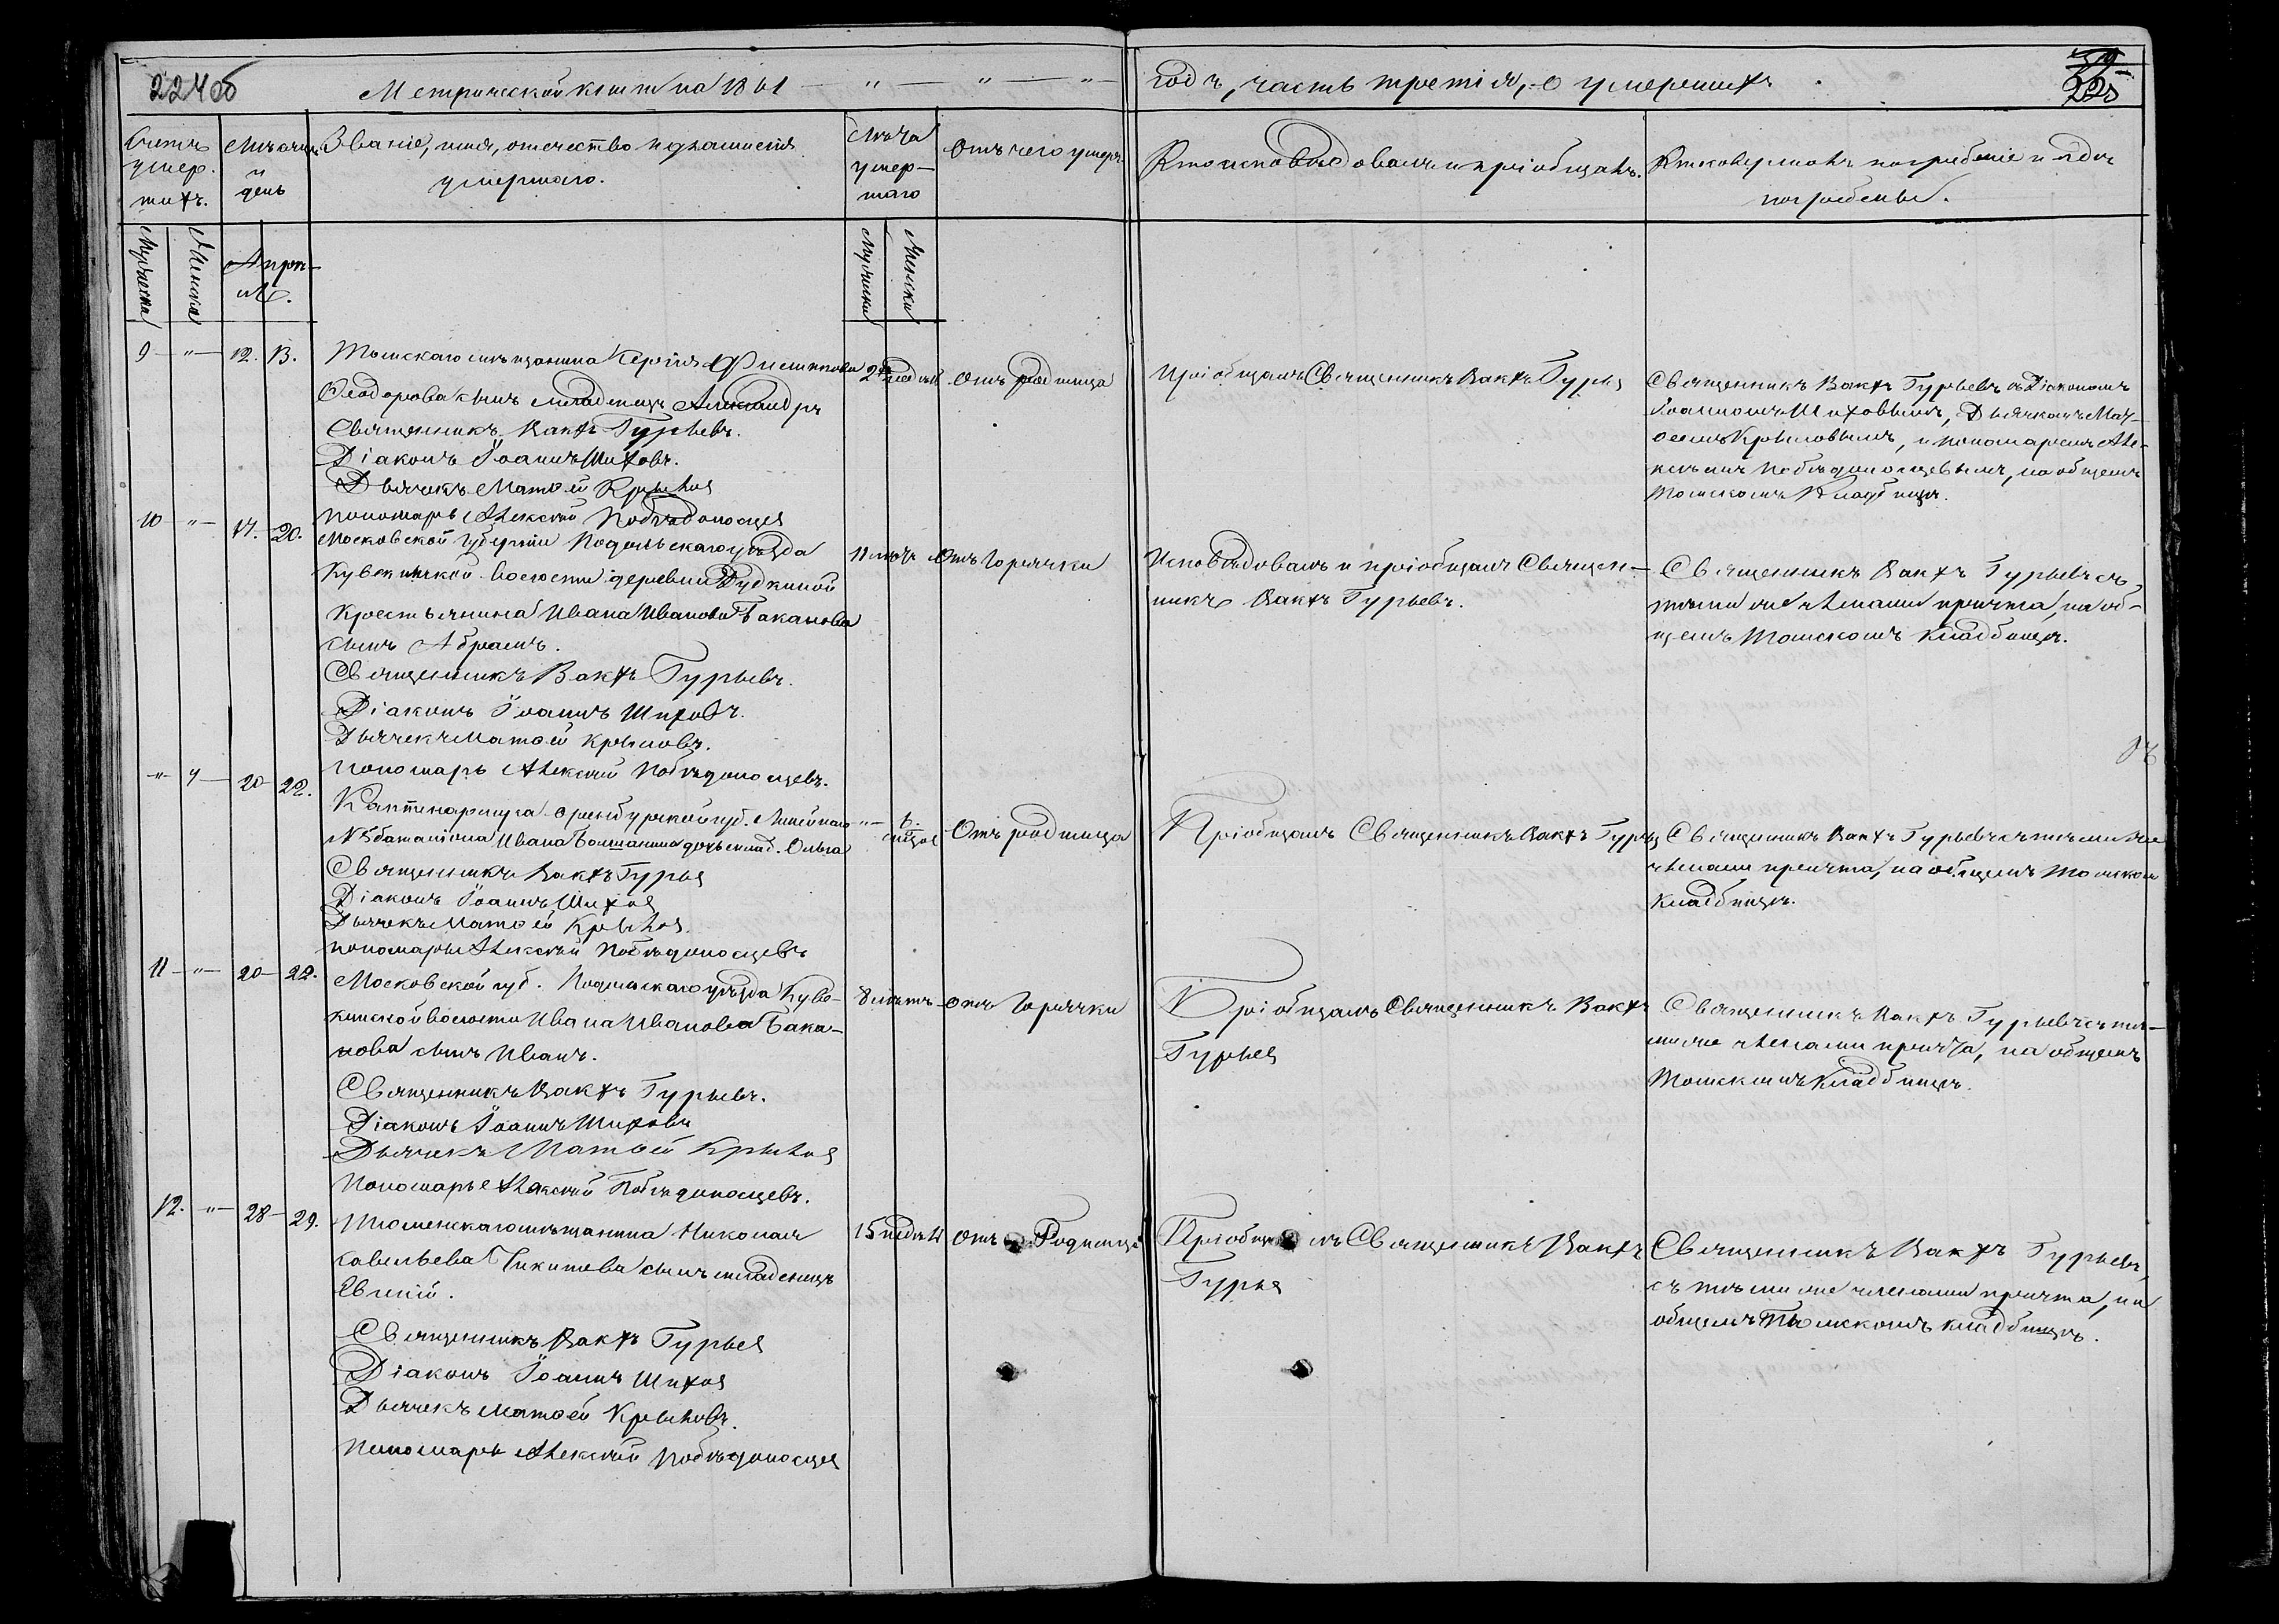 224об
Метрической книги на 1861 — " — " — " —
годъ, часть третія, о умершихъ.
39
225
Счетъ умер-шихъ.
Мѣсяцъ и день
Званіе, имя, отечество и фамилія умершаго.
Лѣта умер-шаго
Отъ чего умеръ
Кто исповѣдовалъ и пріобщалъ.
Кто совершалъ погребеніе и гдѣ погребены.
Мужеска
Женска
Апрѣ-ль.
Мужески
Женски
9 — " — 12. 13.
Томскаго мѣщанина Сергія
Ѳеодорова сынъ младенецъ Александръ
Священникъ Вакхъ Гурьевъ.
Діаконъ Іоаннъ Шиховъ.
Дьячекъ Матѳей Крыловъ
Пономарь Алексѣй Побѣдоносцевъ
2 недѣль
Отъ родимца
Пріобщалъ Священникъ Вакхъ Гурьев
Священникъ Вакхъ Гурьевъ съ Діакономъ
Іоанномъ Шиховымъ, Дьячкомъ Мат-
ѳеемъ Крыловымъ, и пономаремъ Але-
ксѣемъ Побѣдоносцевымъ, на общемъ
Томскомъ Кладбищѣ.
10 " — 17. 20.
Московской губерніи Подольскаго уѣзда
Кувекинской волости деревни Дудкиной
Крестьянина Ивана Иванова Баканова
сынъ Абрамъ.
Священникъ Вакхъ Гурьевъ.
Діаконъ Іоаннъ Шиховъ.
Дьячекъ Матѳей Крыловъ.
Пономарь Алексѣй Побѣдоносцевъ.
11 лѣтъ
Отъ Горячки
Исповѣдовалъ и пріобщалъ Священ-
никъ Вакхъ Гурьевъ.
Священникъ Вакхъ Гурьевъ съ
тѣми же членами причта, на об-
щемъ Томскомъ кладбищѣ.
— " — 4 — 20 — 22.
Каптенармуса Оренбургской губ. Линейнаго
№ 5 баталіона Ивана дочь млад. Ольга
Священникъ Вакхъ Гурьев
Діаконъ Іоаннъ Шихов
Дьячекъ Матѳей Крылов.
пономарь Алексѣй Побѣдоносцевъ
" — 6. мѣсяц
Отъ родимца
Пріобщалъ Священникъ Вакхъ Гурьев
Священникъ Вакхъ Гурьевъ съ тѣми же
членами причта, на общемъ Томском
кладбищѣ.
11 — " — 20 — 22.
Московской губ. Подольскаго уѣзда Куве-
кинской волости Ивана Иванова Бака-
нова сынъ Иванъ.
Священникъ Вакхъ Гурьевъ.
Діаконъ Іоаннъ Шиховъ
Дьячекъ Матѳей Крылов
Пономарь Алексѣй Побѣдоносцевъ.
8 лѣтъ
Отъ Горячки
Пріобщалъ Священникъ Вакхъ
Гурьев
Священникъ Вакхъ Гурьевъ съ тѣ-
ми же членами причта, на общемъ
Томскомъ кладбищѣ.
12. " — 28 — 29.
Тюменскаго мѣщанина Николая
Савельева Никитева сынъ младенецъ
Евгеній.
Священникъ Вакхъ Гурьев
Діаконъ Іоаннъ Шихов
Дьячекъ Матѳей Крыловъ.
Пономарь Алексѣй Побѣдоносцев
15 недѣль
Отъ Родимца
Пріобщалъ Священникъ Вакхъ
Гурьев
Священникъ Вакхъ Гурьевъ,
съ тѣми же членами причта, на
общемъ Томскомъ кладбищѣ.